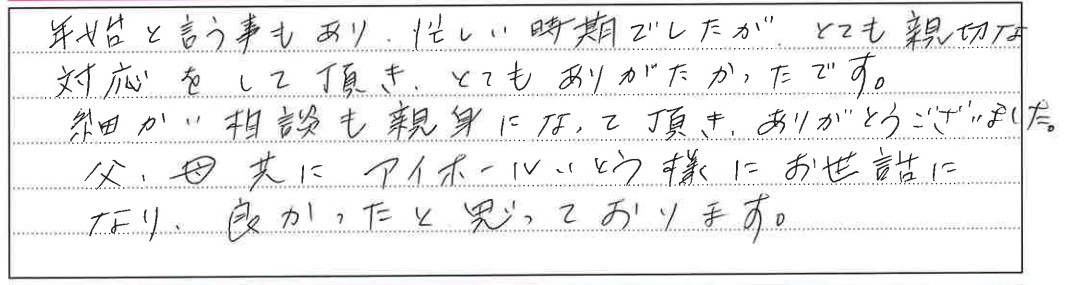 年始と言う事もあり、忙しい時期でしたが、とても親切な
対応をして頂き、とてもありがたかったです。
細かい相談も親身になって頂き、ありがとうございました。
父、母共にアイホールいとう様にお世話に
なり、良かったと思っております。